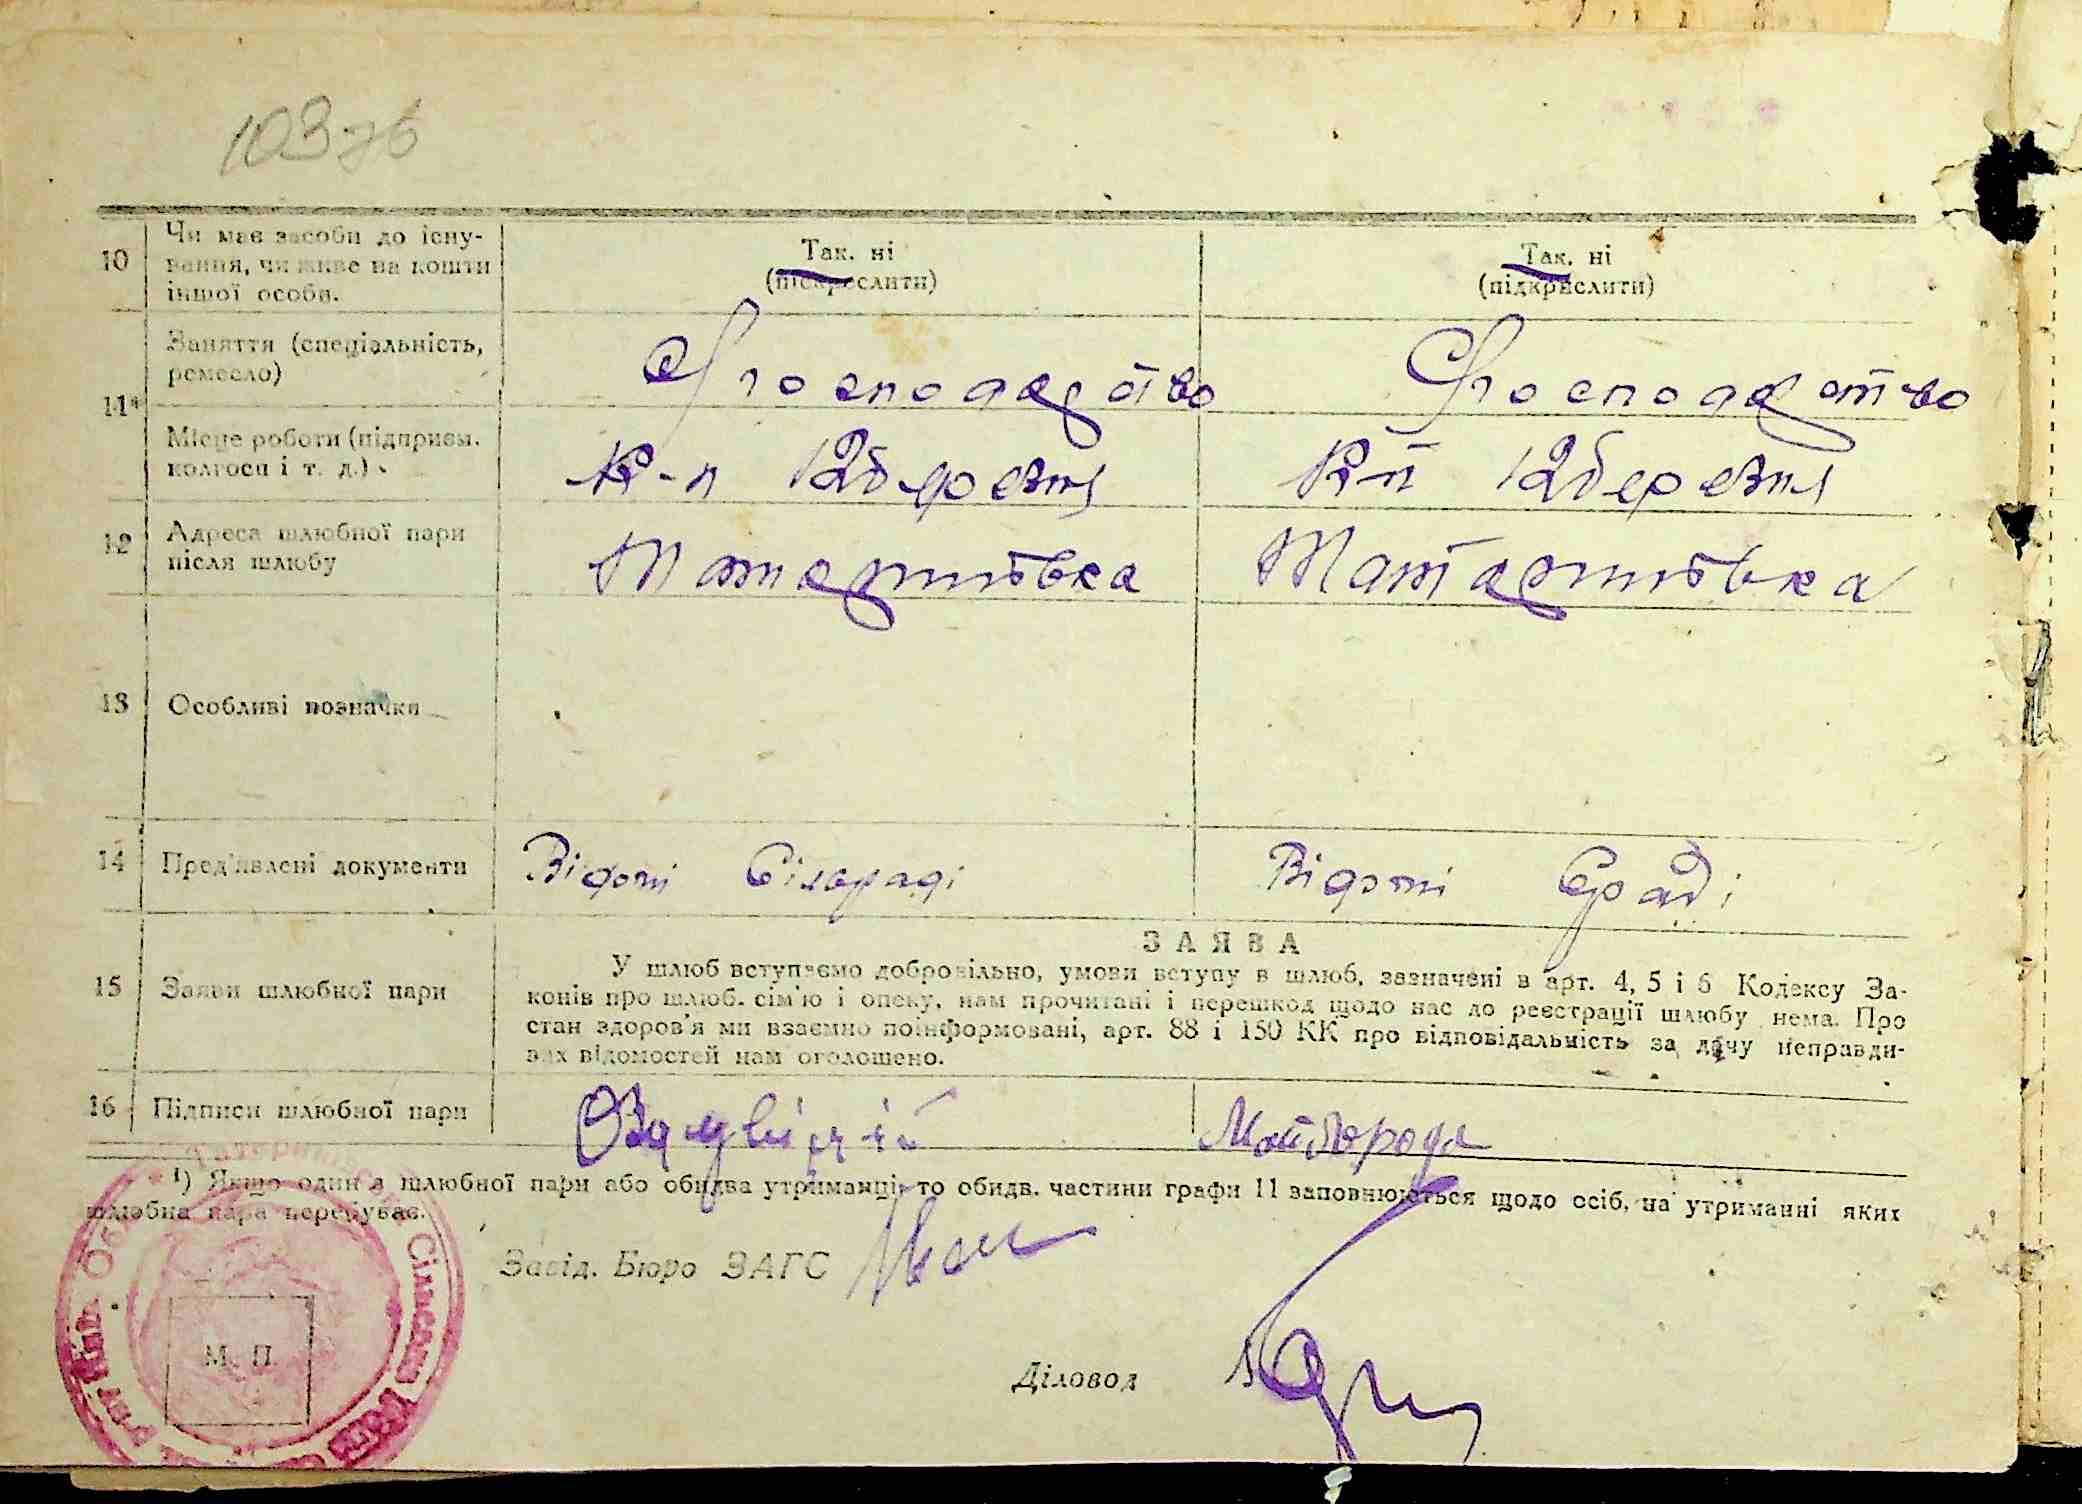 103 зв
10 Чи має засоби до існу-
вання, чи живе на кошти
іншої особи.
Так. ні
(підкреслити)
Так. ні
(підкреслити)
11¹ Заняття (спеціальність,
ремесло)
С/господарство
С/господарство
Місце роботи (підприєм.
колгосп і т. д.)
К-п 12 березня
К-п 12 березня
12 Адреса шлюбної пари
після шлюбу
Татаринівка
Татаринівка
13 Особливі позначки
14 Пред'явлені документи
Відомі Сільраді
Відомі С/раді
15 Заяви шлюбної пари
ЗАЯВА
У шлюб вступаємо добровільно, умови вступу в шлюб, зазначені в арт. 4, 5 і 6 Кодексу За-
конів про шлюб. сім'ю і опеку, нам прочитані і перешкод щодо нас до реєстрації шлюбу нема. Про
стан здоров'я ми взаємно поінформовані, арт. 88 і 150 КК про відповідальність за дачу неправди-
вих відомостей нам оголошено.
16 Підписи шлюбної пари
Майборода
¹) Якщо один з шлюбної пари або обидва утриманці, то обидв. частини графи 11 заповнюються щодо осіб, на утриманні яких
шлюбна пара перебуває.
Завід. Бюро ЗАГС
М. П.
Діловод